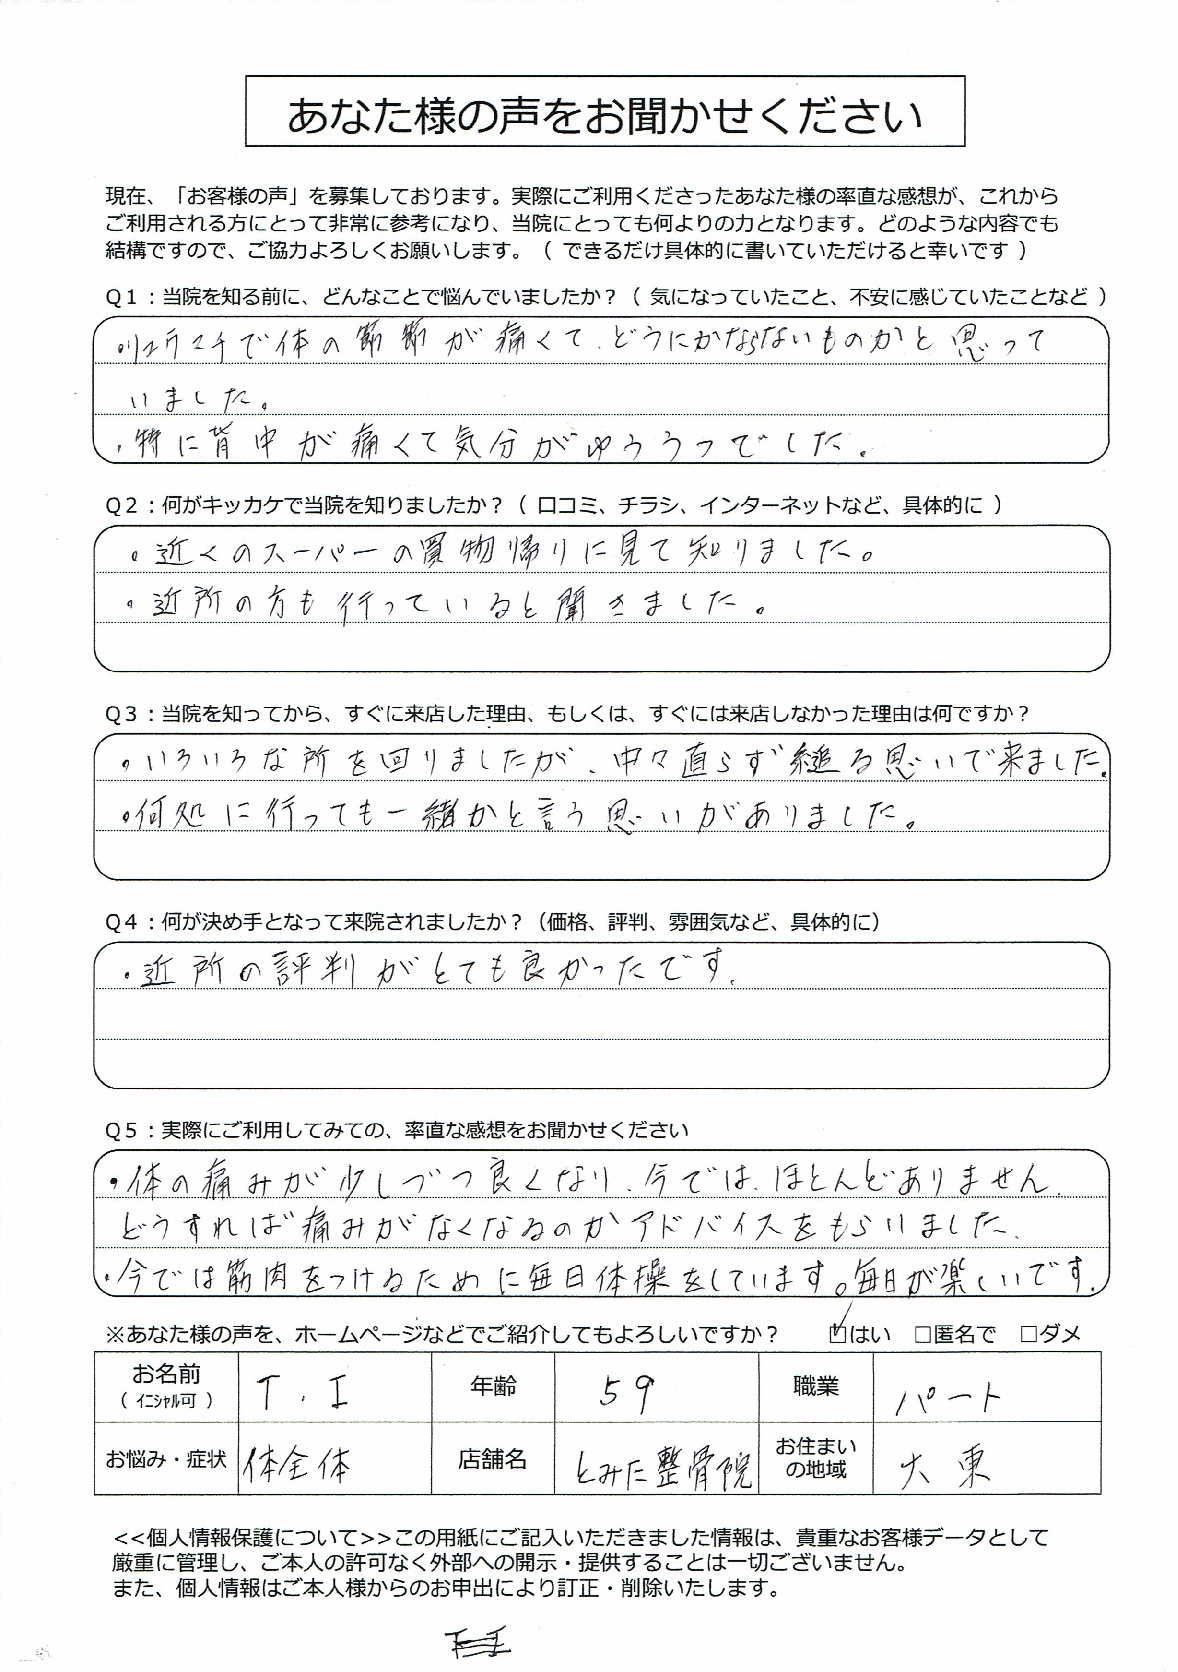 あなた様の声をお聞かせください
現在、「お客様の声」を募集しております。実際にご利用くださったあなた様の率直な感想が、これから
ご利用される方にとって非常に参考になり、当院にとっても何よりの力となります。どのような内容でも
結構ですので、ご協力よろしくお願いします。（ できるだけ具体的に書いていただけると幸いです ）
Q1：当院を知る前に、どんなことで悩んでいましたか？（ 気になっていたこと、不安に感じていたことなど ）
・リュウマチで体の節節が痛くて、どうにかならないものかと思って
いました。
・特に背中が痛くて気分がゆううつでした。
Q2：何がキッカケで当院を知りましたか？（ 口コミ、チラシ、インターネットなど、具体的に ）
・近くのスーパーの買物帰りに見て知りました。
・近所の方も行っていると聞きました。
Q3：当院を知ってから、すぐに来店した理由、もしくは、すぐには来店しなかった理由は何ですか？
・いろいろな所を回りましたが、中々直らず縋る思いで来ました。
・何処に行っても一緒かと言う思いがありました。
Q4：何が決め手となって来院されましたか？（価格、評判、雰囲気など、具体的に）
・近所の評判がとても良かったです。
Q5：実際にご利用してみての、率直な感想をお聞かせください
・体の痛みが少しづつ良くなり、今では、ほとんどありません。
どうすれば痛みがなくなるのかアドバイスをもらいました。
・今では筋肉をつけるために毎日体操をしています。毎日が楽しいです。
※あなた様の声を、ホームページなどでご紹介してもよろしいですか？ ☑はい □匿名で □ダメ
お名前 T.I 年齢 59 職業 パート
（ ｲﾆｼｬﾙ可 ）
お悩み・症状 体全体 店舗名 とみた整骨院 お住まいの地域 大東
<<個人情報保護について>>この用紙にご記入いただきました情報は、貴重なお客様データとして
厳重に管理し、ご本人の許可なく外部への開示・提供することは一切ございません。
また、個人情報はご本人様からのお申出により訂正・削除いたします。